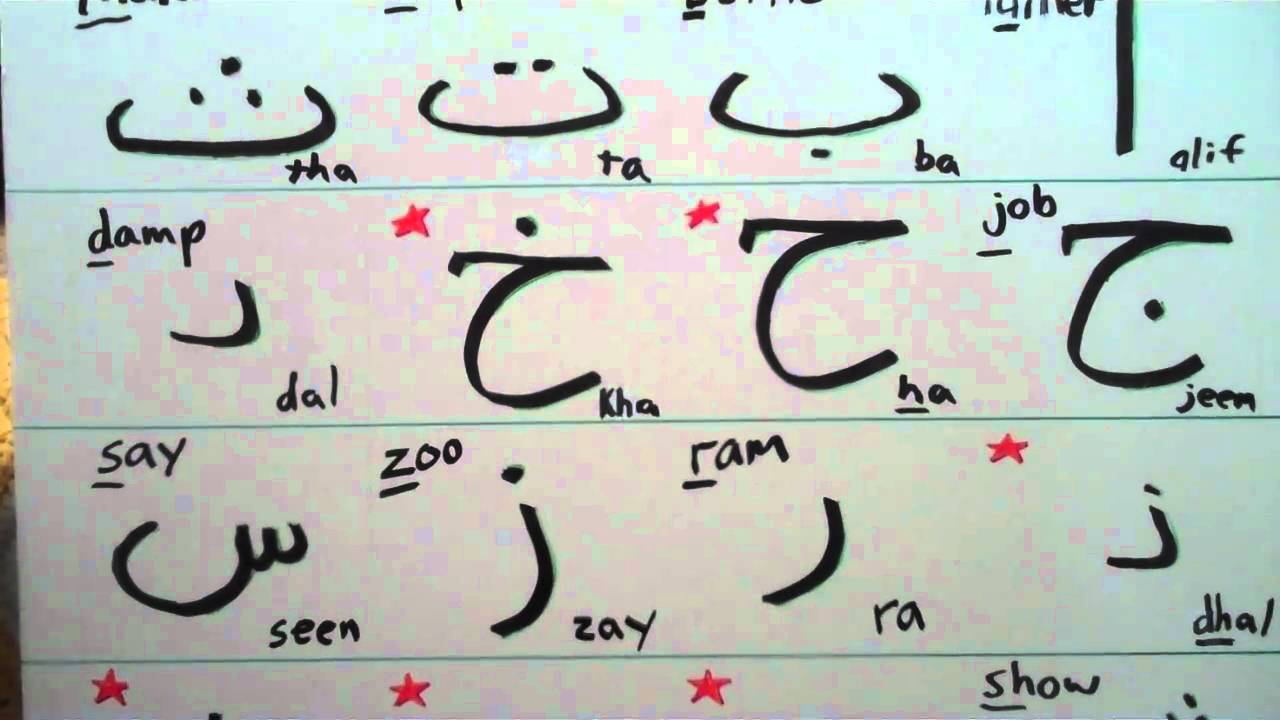 ا ب ت ث
alif ba ta tha
job damp
ج ح خ د
jeem ha kha dal
ram zoo say
ذ ر ز س
dhal ra zay seen
show